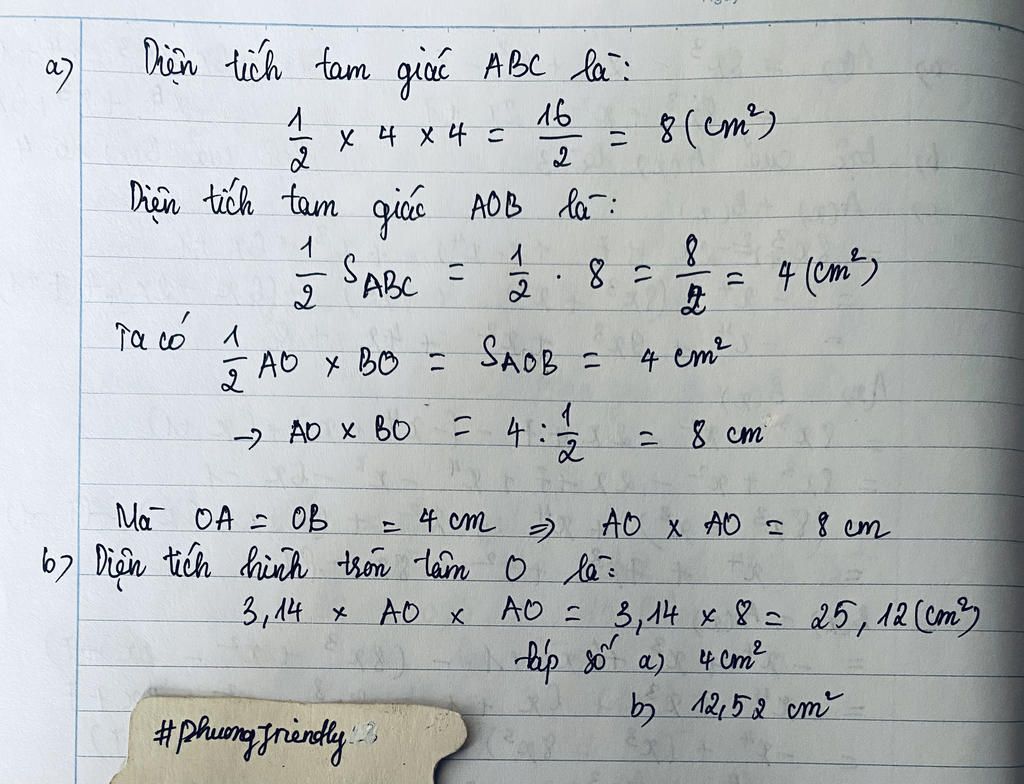 a) Diện tích tam giác ABC là:
1/2 x 4 x 4 = 16/2 = 8 (cm²)
Diện tích tam giác AOB là:
1/2 S_ABC = 1/2 . 8 = 8/2 = 4 (cm²)
Ta có 1/2 AO x BO = S_AOB = 4 cm²
→ AO x BO = 4 : 1/2 = 8 cm
Mà OA = OB = 4 cm ⇒ AO x AO = 8 cm
b) Diện tích hình tròn tâm O là:
3,14 x AO x AO = 3,14 x 8 = 25,12 (cm²)
Đáp số a) 4 cm²
b) 12,52 cm²
#phuongfriendly